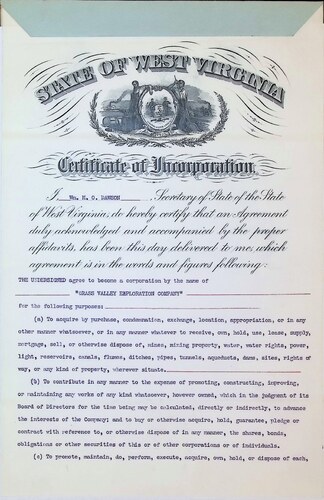 STATE OF WEST VIRGINIA
Certificate of Incorporation
I, Wm. M. O. DAWSON, Secretary of State of the State
of West Virginia, do hereby certify that an Agreement
duly acknowledged and accompanied by the proper
affidavits, has been this day delivered to me; which
agreement is in the words and figures following:
THE UNDERSIGNED agree to become a corporation by the name of
"GRASS VALLEY EXPLORATION COMPANY"
For the following purposes:
(a) To acquire by purchase, condemnation, exchange, location, appropriation, or in any
other manner whatsoever, or in any manner whatever to receive, own, hold, use, lease, supply,
mortgage, sell, or otherwise dispose of, mines, mining property, water, water rights, power,
light, reservoirs, canals, flumes, ditches, pipes, tunnels, aqueducts, dams, sites, rights of
way, or any kind of property, wherever situate.
(b) To contribute in any manner to the expense of promoting, constructing, improving,
or maintaining any works of any kind whatsoever, however owned, which in the judgment of its
Board of Directors for the time being may be calculated, directly or indirectly, to advance
the interests of the Company; and to buy or otherwise acquire, hold, guarantee, pledge or
contract with reference to, or otherwise dispose of in any manner, the shares, bonds,
obligations or other securities of this or of other corporations or of individuals.
(c) To promote, maintain, do, perform, execute, acquire, own, hold, or dispose of each,